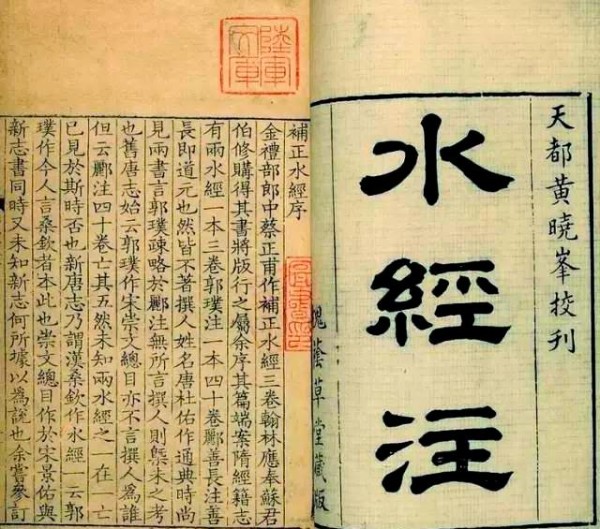 天都黄曉峯挍刊
水經注
槐蔭草堂藏版
補正水經序
金禮部郎中蔡正甫作補正水經三卷翰林應奉蘇君
伯修購得其書將版行之屬余序其篇端案隋經籍志
有兩水經一本三卷郭璞注一本四十卷酈善長注善
長即道元也然皆不著撰人姓名唐杜佑作通典時尚
見兩書言郭璞疎略於酈注無所言撰人則槩未之考
也舊唐志始云郭璞作宋崇文總目亦不言撰人為誰
但云酈注四十卷亡其五然未知兩水經之一在一亡
已見於斯時否也新唐志乃謂漢桑欽作水經一云郭
璞作今人言桑欽者本此也崇文總目作於宋景佑與
新志書同時又未知新志何所據以爲說也余嘗參訂
陸軍